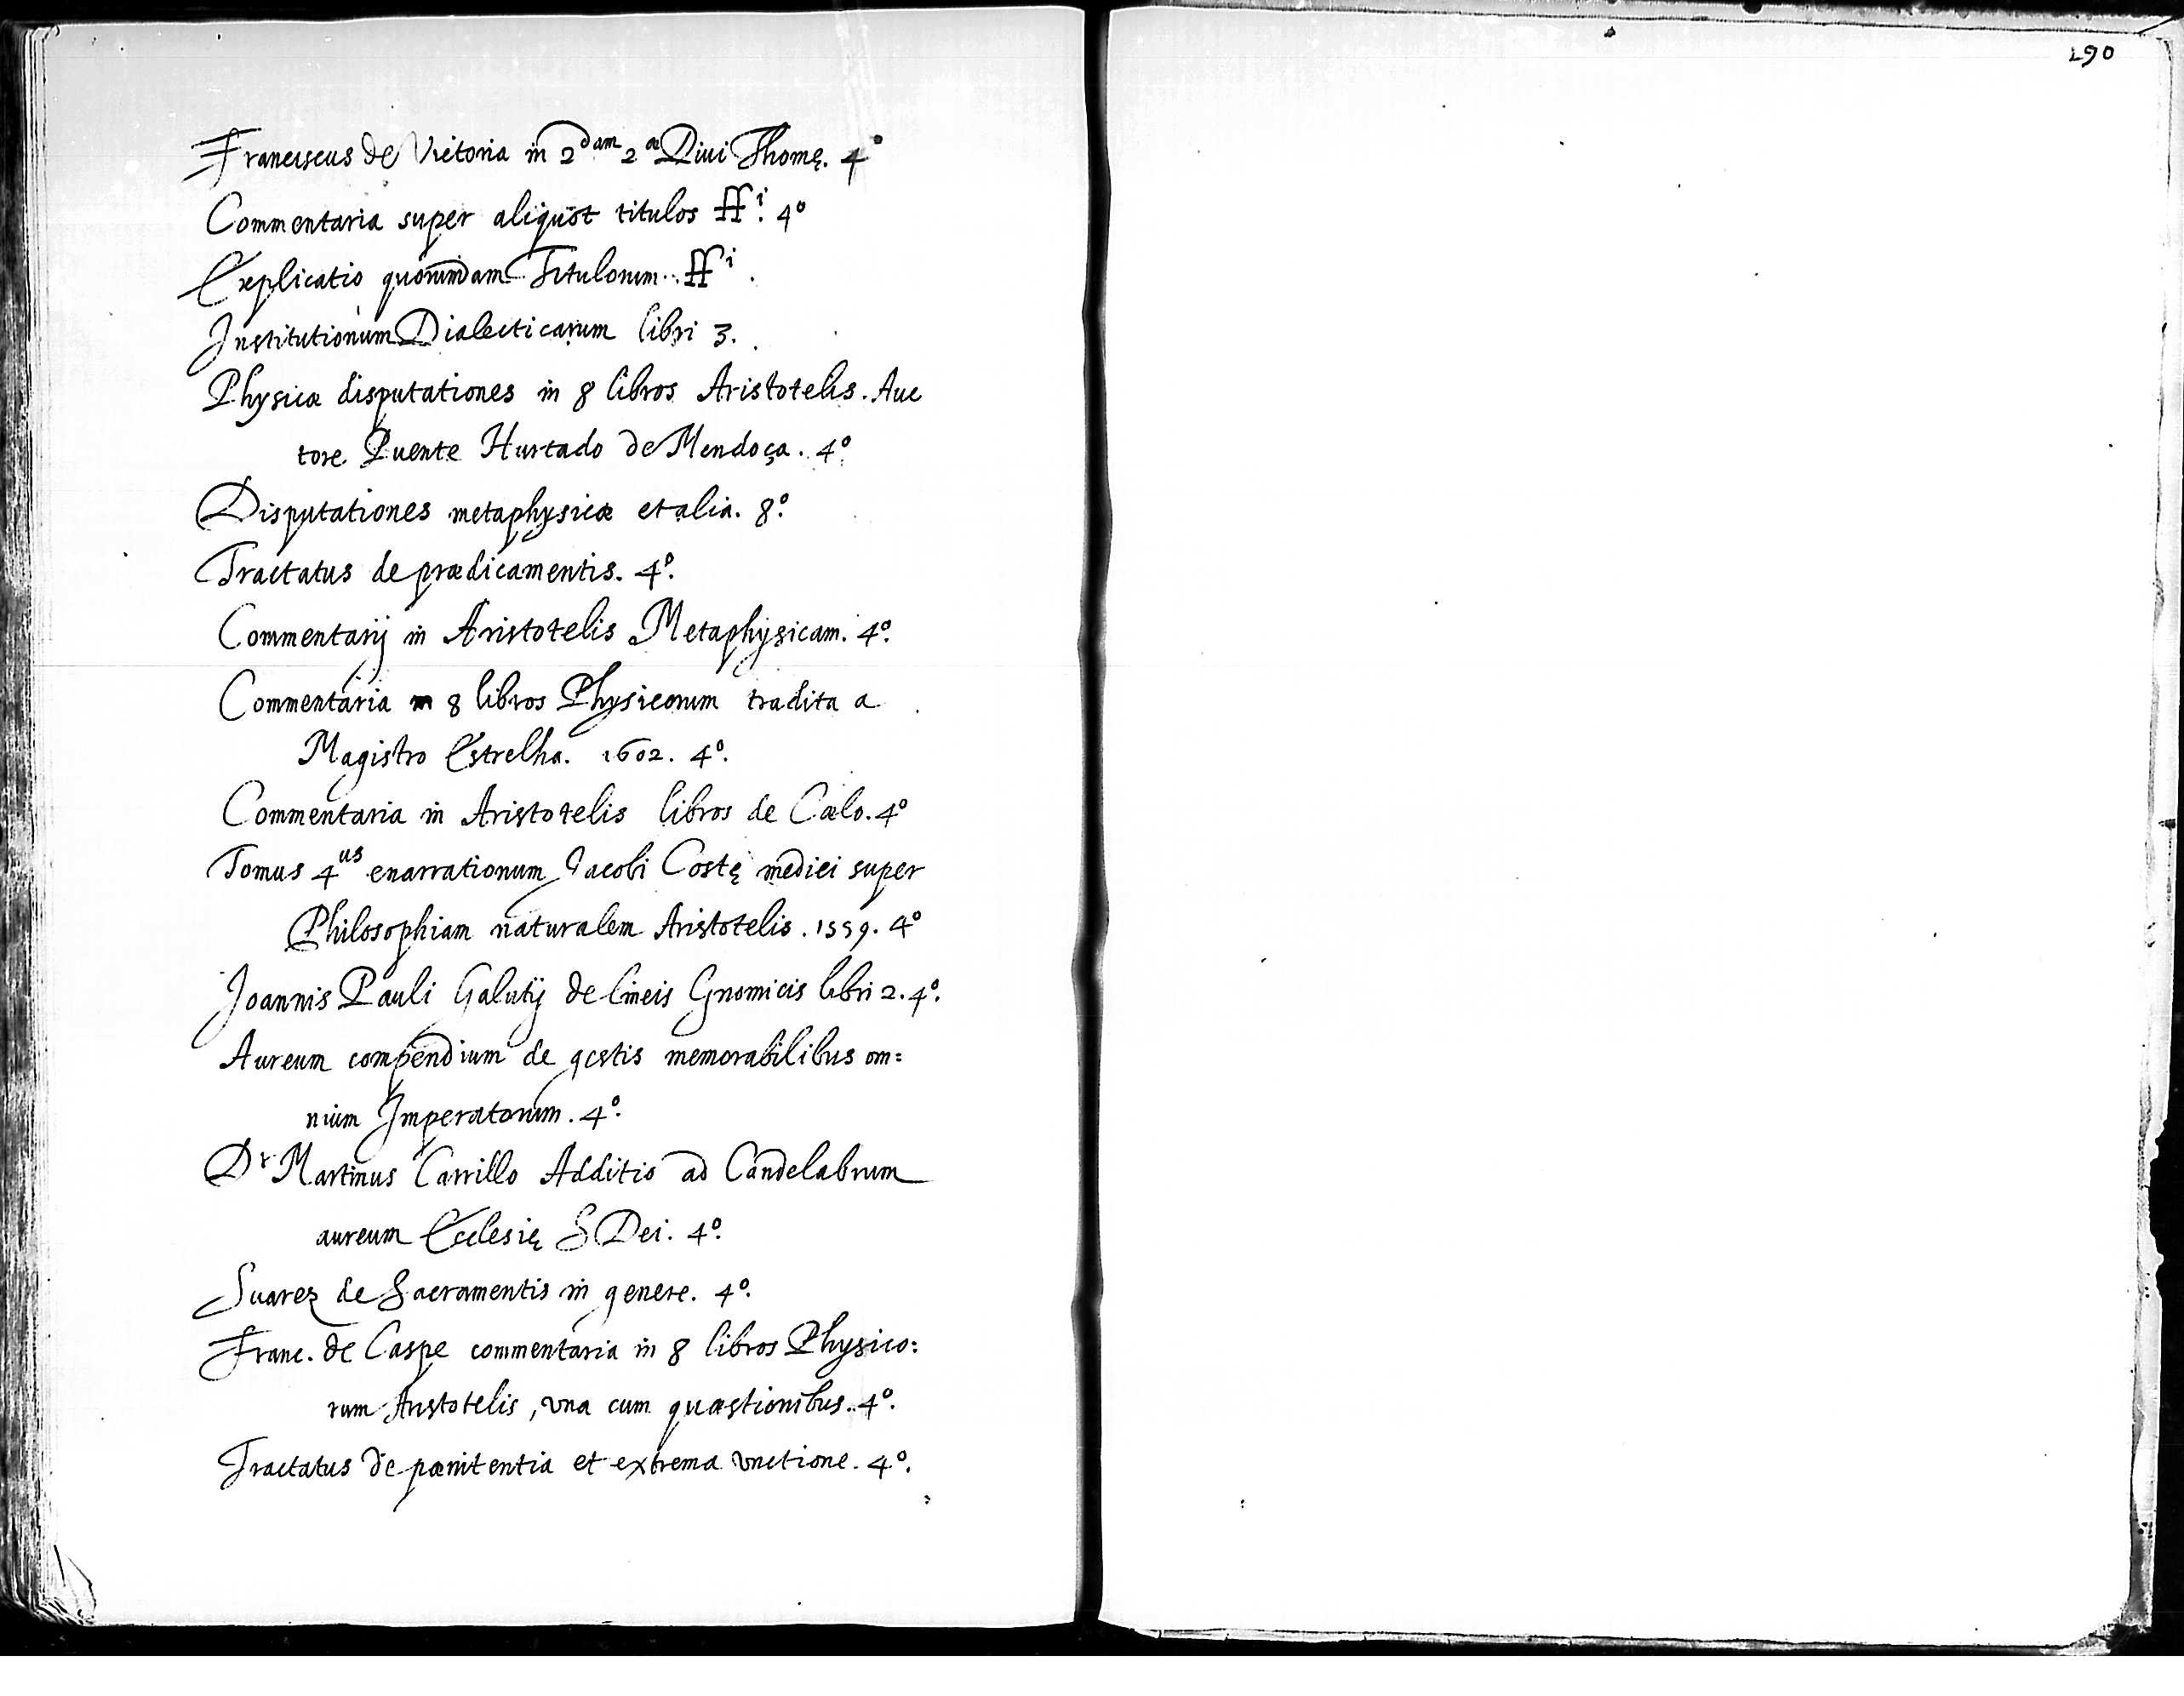 Franciscus de Victoria in 2dam 2æ Diui Thomę. 4º
Commentaria super aliquot titulos ffi. 4º
Explicatio quorumdam Titulorum. ffi.
Institutionum Dialecticarum libri 3.
Physicæ disputationes in 8 libros Aristotelis. Auc
tore Puente Hurtado de Mendoça. 4º.
Disputationes metaphysicæ et alia. 8º.
Tractatus de prædicamentis. 4º.
Commentarij in Aristotelis Metaphysicam. 4º.
Commentaria in 8 libros Physicorum tradita a
Magistro Estrelha. 1602. 4º.
Commentaria in Aristotelis libros de Cælo. 4º
Tomus 4us enarrationum Jacobi Costę medici super
Philosophiam naturalem Aristotelis. 1559. 4º
Joannis Pauli Galutij de lineis Gnomicis libri 2. 4º.
Aureum compendium de gestis memorabilibus om:
nium Imperatorum. 4º.
Dr Martinus Carrillo Additio ad Candelabrum
aureum Ecclesię S Dei. 4º.
Suarez de Sacramentis in genere. 4º.
Franc. de Caspe commentaria in 8 libros Physico:
rum Aristotelis, vna cum quæstionibus. 4º.
Tractatus de pænitentia et extrema vnctione. 4º.
290